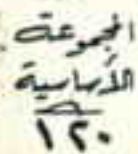 المجموعة
الأساسية
١٢٠